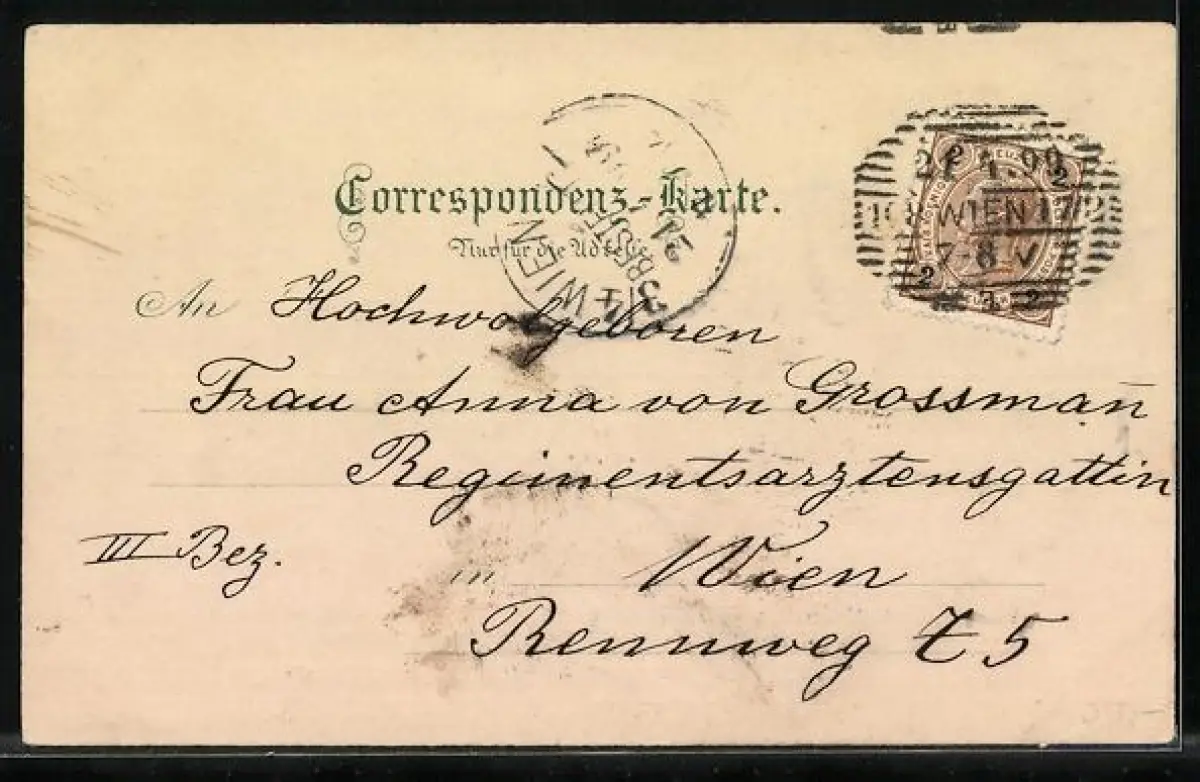 Correspondenz-Karte.
Nur für die Adresse
2 1. 99
WIEN 17/2
7-8 V
WIEN
An Hochwolgeboren
Frau Anna von Grossman̄
Regimentsarztensgattin
III Bez.
in Wien
Rennweg 75